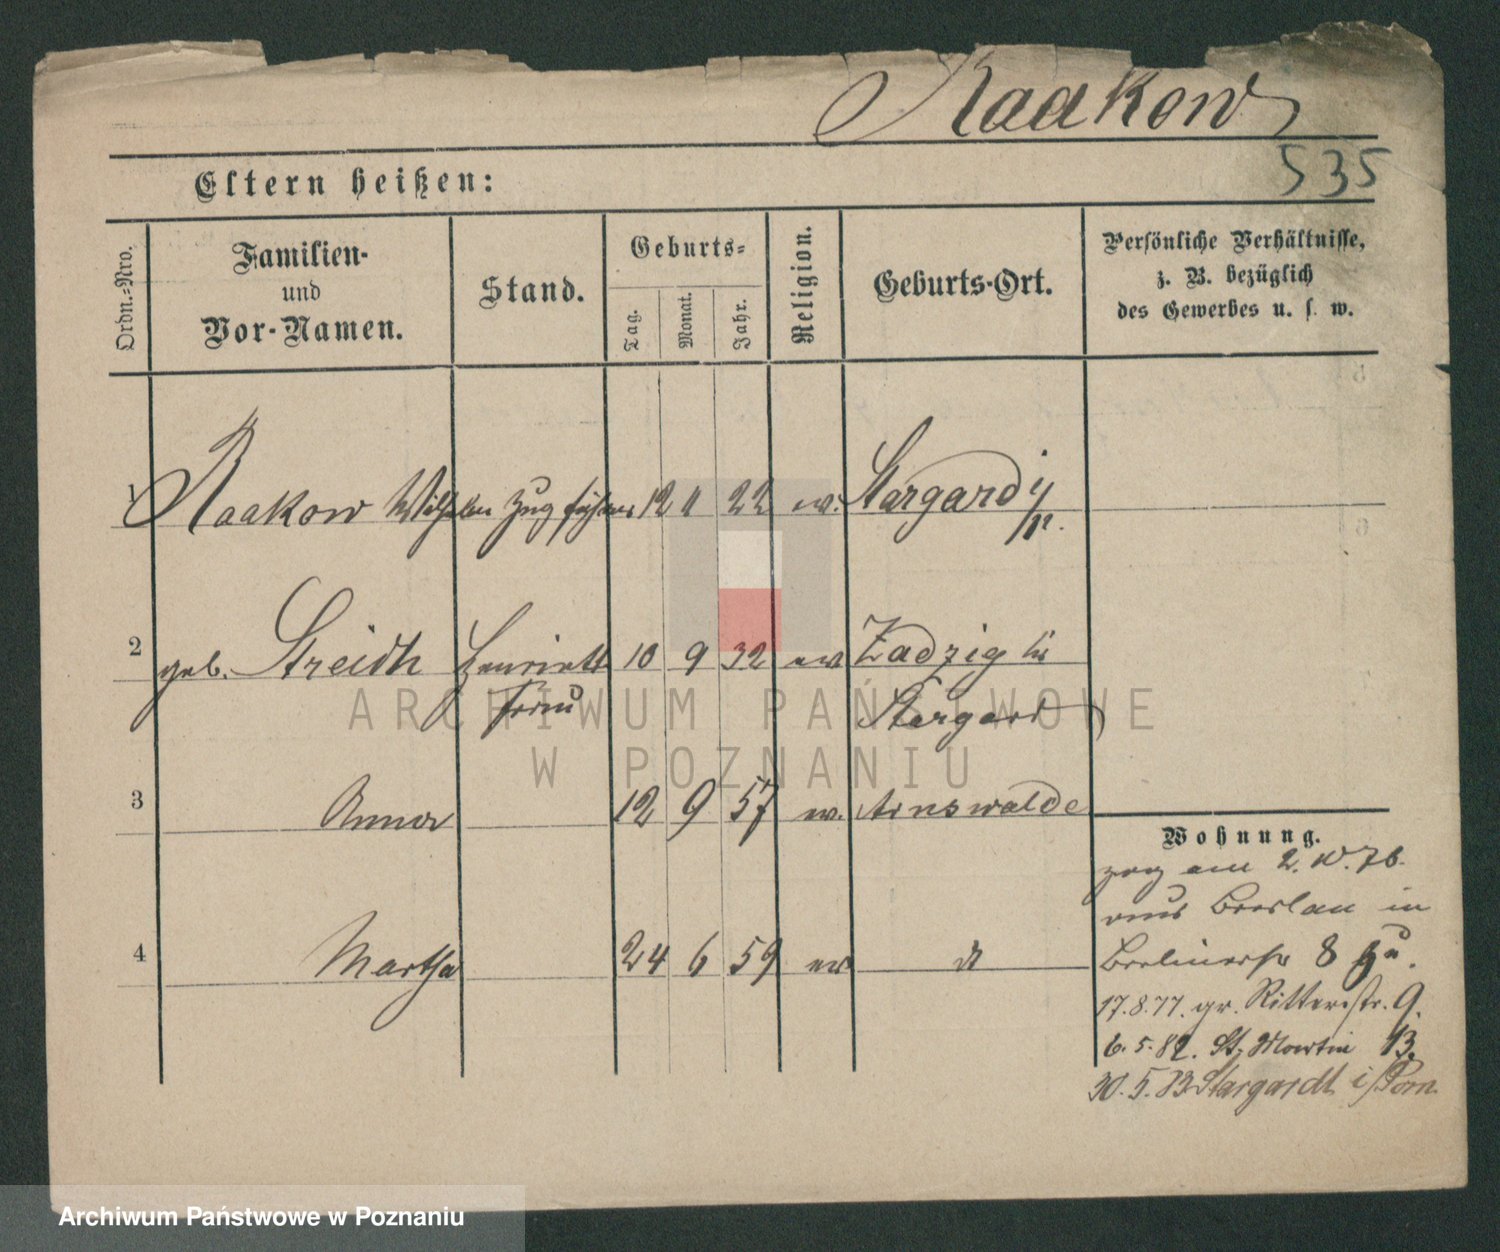 Raakow
535
Eltern heißen:
Ordn.-Nro.
Familien-
und
Vor-Namen.
Stand.
Geburts-
Tag.
Monat.
Jahr.
Religion.
Geburts-Ort.
Persönliche Verhältnisse,
z. B. bezüglich
des Gewerbes u. s. w.
1 Raakow Wilhelm Zugführer 12 11 22 ev. Stargard i/P.
2 geb. Streich Henriette 10 9 32 ev Zadzig bei
Frau Stargard
3 Anna 12 9 57 ev. Arnswalde
4 Martha 24 6 59 ev dt
Wohnung.
zog am 2. 10. 76.
aus Breslau in
Berlinerstr 8 zu.
17.8.77. gr. Ritterstr. 9.
6. 5. 82. St. Martin 13.
30. 5. 83 Stargardt i/Pom
ARCHIWUM PAŃSTWOWE
W POZNANIU
Archiwum Państwowe w Poznaniu